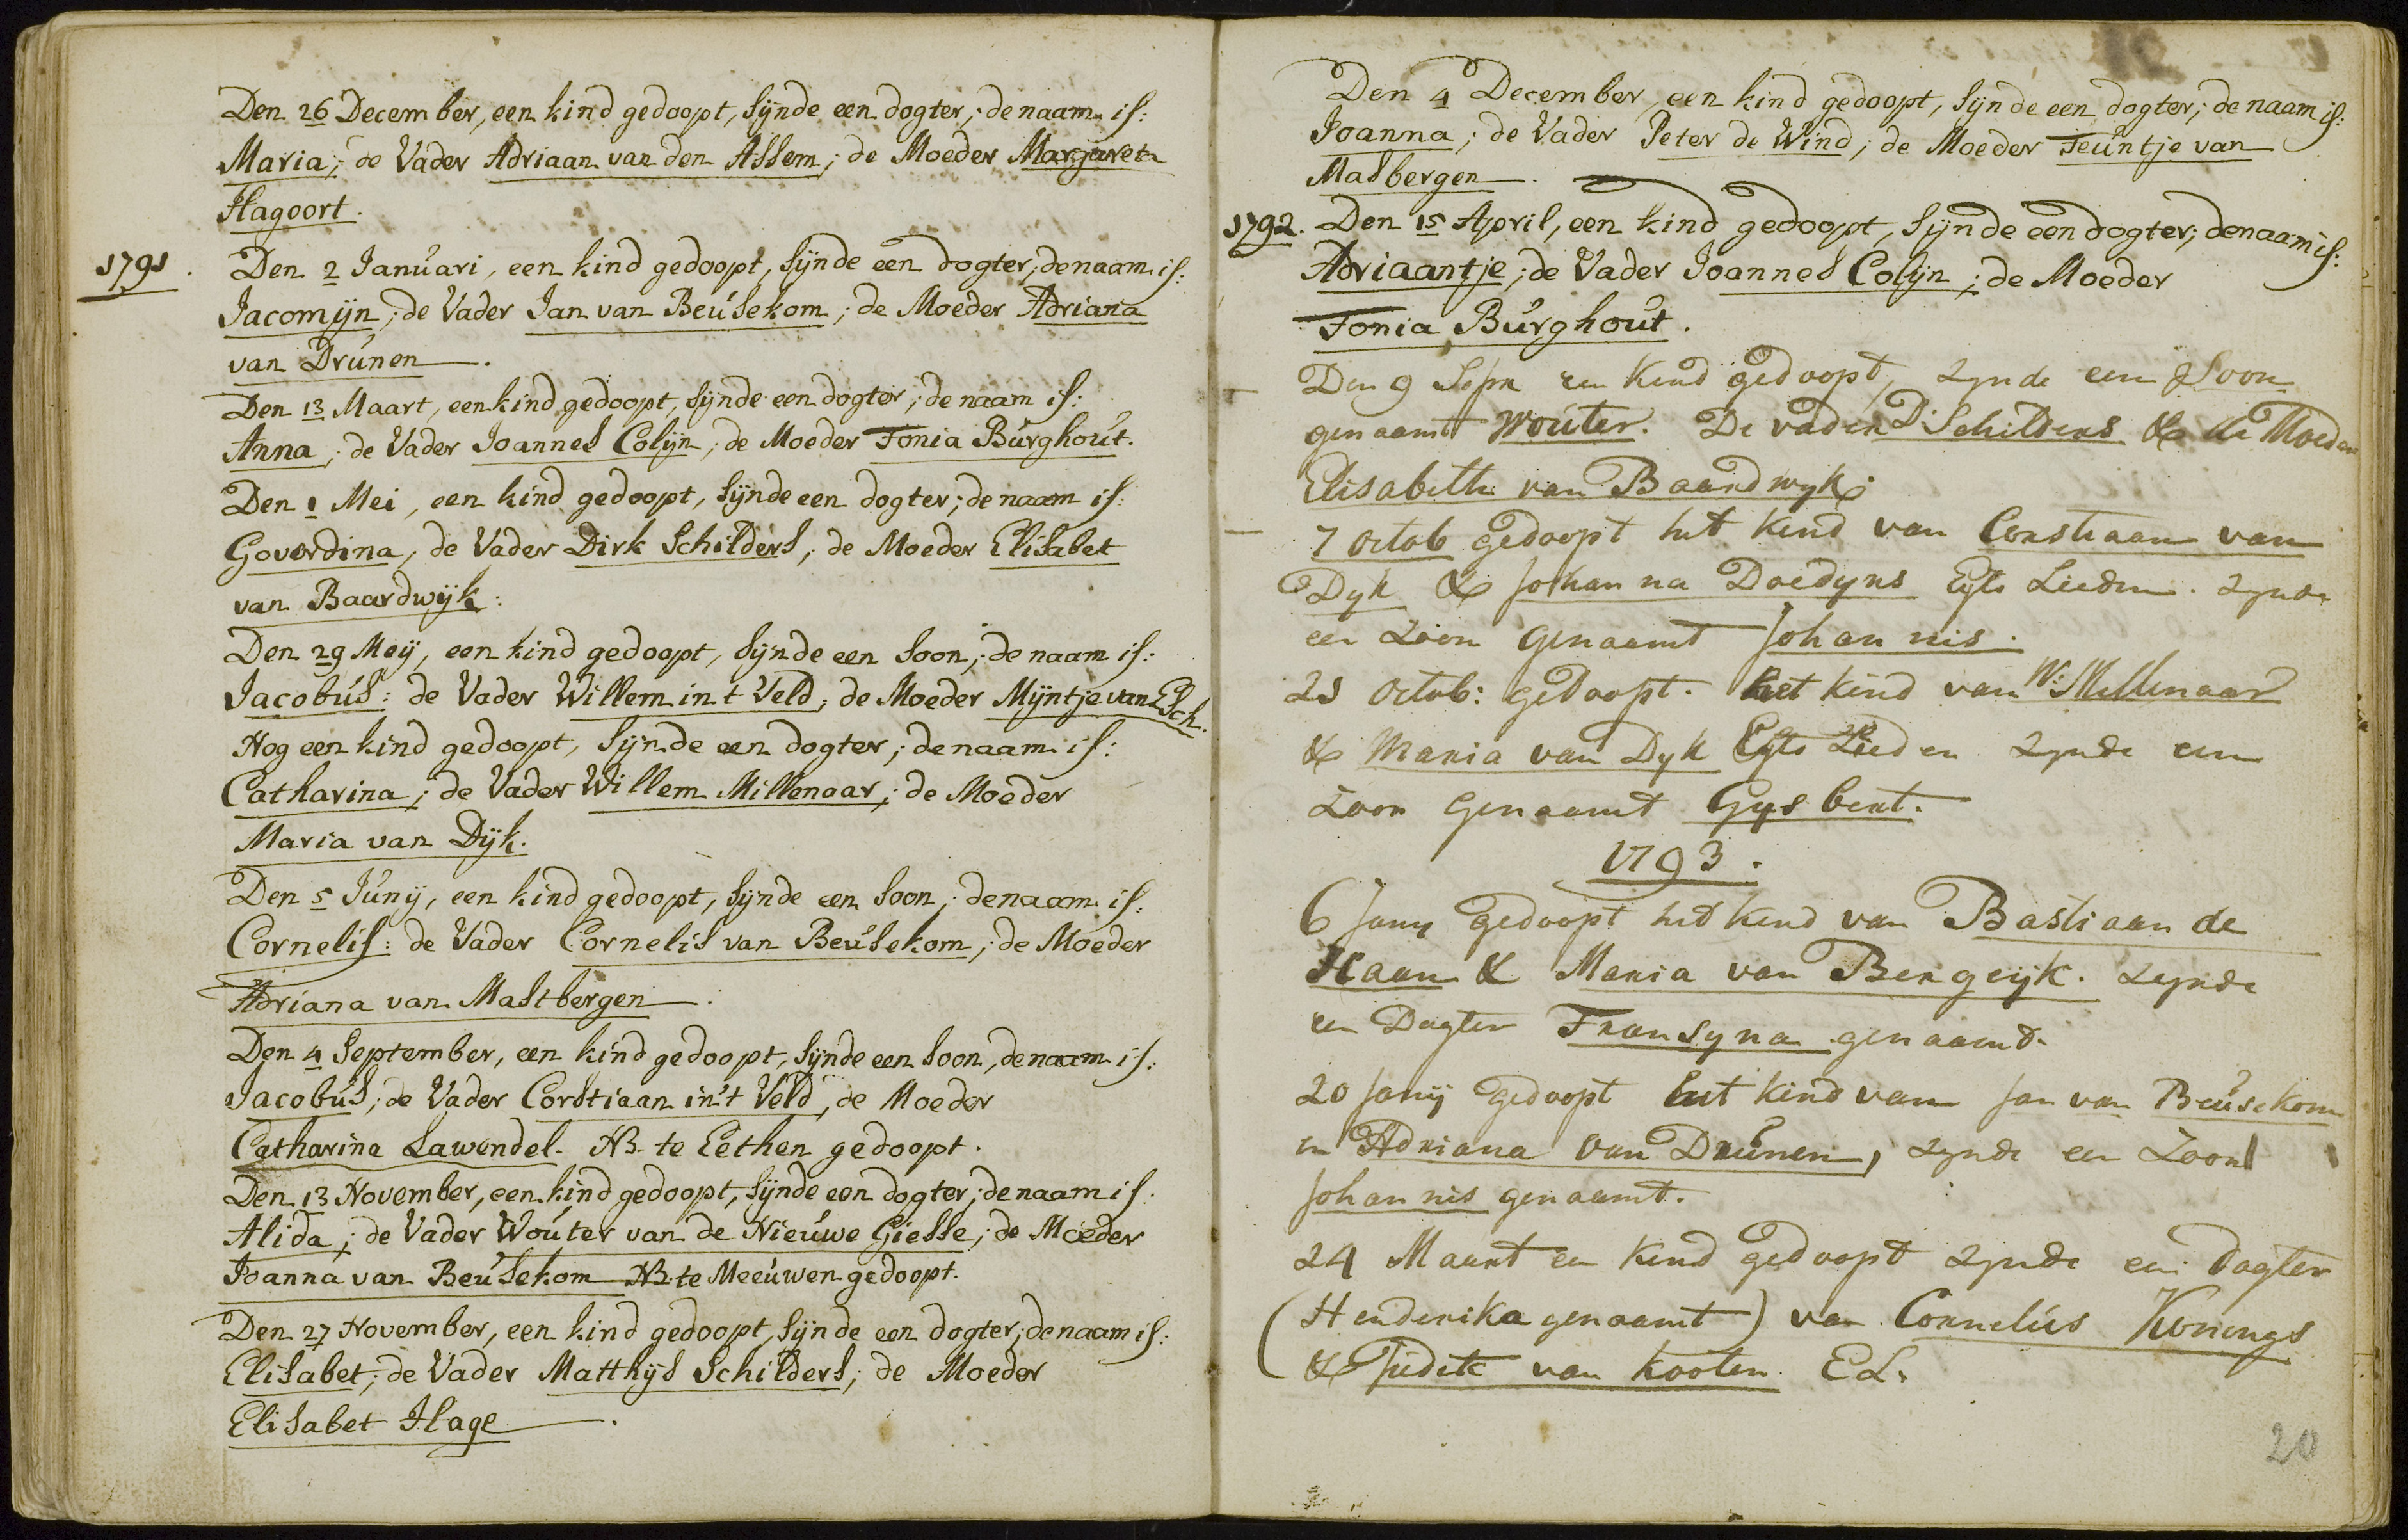 Den 26 December, een kind gedoopt, sÿnde een dogter; de naam is:
Maria; de Vader Adriaan van den Assem; de Moeder Margaret
Hagoort.
1791. Den 2 Januari, een kind gedoopt, sÿnde een dogter; de naam is:
Jacomÿn; de Vader Jan van Beusekom; de Moeder Adriana
van Drunen.
Den 13 Maart, een kind gedoopt, sÿnde een dogter; de naam is:
Anna; de Vader Joannes Colÿn; de Moeder Tonia Burghout.
Den 1 Mei, een kind gedoopt, sÿnde een dogter; de naam is:
Goverdina; de Vader Dirk Schilders; de Moeder Elisabet
van Baardwÿk:
Den 29 Meÿ, een kind gedoopt, sÿnde een soon; de naam is:
Jacobus: de Vader Willem in t Veld; de Moeder Mÿntje van Esch.
Nog een kind gedoopt, sÿnde een dogter; de naam is:
Catharina; de Vader Willem Millenaar; de Moeder
Maria van Dÿk.
Den 5 Junÿ, een kind gedoopt, sÿnde een soon; de naam is:
Cornelis: de Vader Cornelis van Beusekom; de Moeder
Adriana van Mastbergen.
Den 4 September, een kind gedoopt, sÿnde een soon, de naam is:
Jacobus; de Vader Corstiaan in't Veld, de Moeder
Catharina Lawendel. NB. te Eethen gedoopt.
Den 13 November, een kind gedoopt, sÿnde een dogter; de naam is:
Alida; de Vader Wouter van de Nieuwe Giesse; de Moeder
Joanna van Beusekom NB. te Meeuwen gedoopt.
Den 27 November, een kind gedoopt, sÿnde een dogter; de naam is:
Elisabet; de Vader Matthÿs Schilders; de Moeder
Elisabet Hage.
Den 4 December, een kind gedoopt, sÿnde een dogter; de naam is:
Joanna; de Vader Peter de Wind; de Moeder Teuntje van
Masbergen.
1792. Den 15 April, een kind gedoopt, sÿnde een dogter; de naam is:
Adriaantje; de Vader Joannes Colÿn; de Moeder
Tonia Burghout.
Den 9 Sepr een kind gedoopt, zynde een Soon
genaamt Wouter. De vader D: Schilders & de Moeder
Elisabeth van Baardwyk.
7 Octob gedoopt het kind van Corstiaan van
Dyk & Johanna Doedyns Egte Lieden. zynde
een Zoon genaamt Johannis.
21 Octob: gedoopt. het kind van W: Millenaar
& Maria van Dyk Egte Lieden zynde een
Zoon genaamt Gysbert.
1793.
6 Jany gedoopt het kind van Bastiaan de
Haan & Maria van Bergeijk. zynde
een Dogter Fransyna genaamd.
20 Janÿ gedoopt het kind van Jan van Beusekom
en Adriana van Drunen, zynde een Zoon
Johannis genaamt.
24 Maart een kind gedoopt zynde een dogter
(Henderika genaamt) van Cornelius Konings
& Judik van Kooten. EL.
20